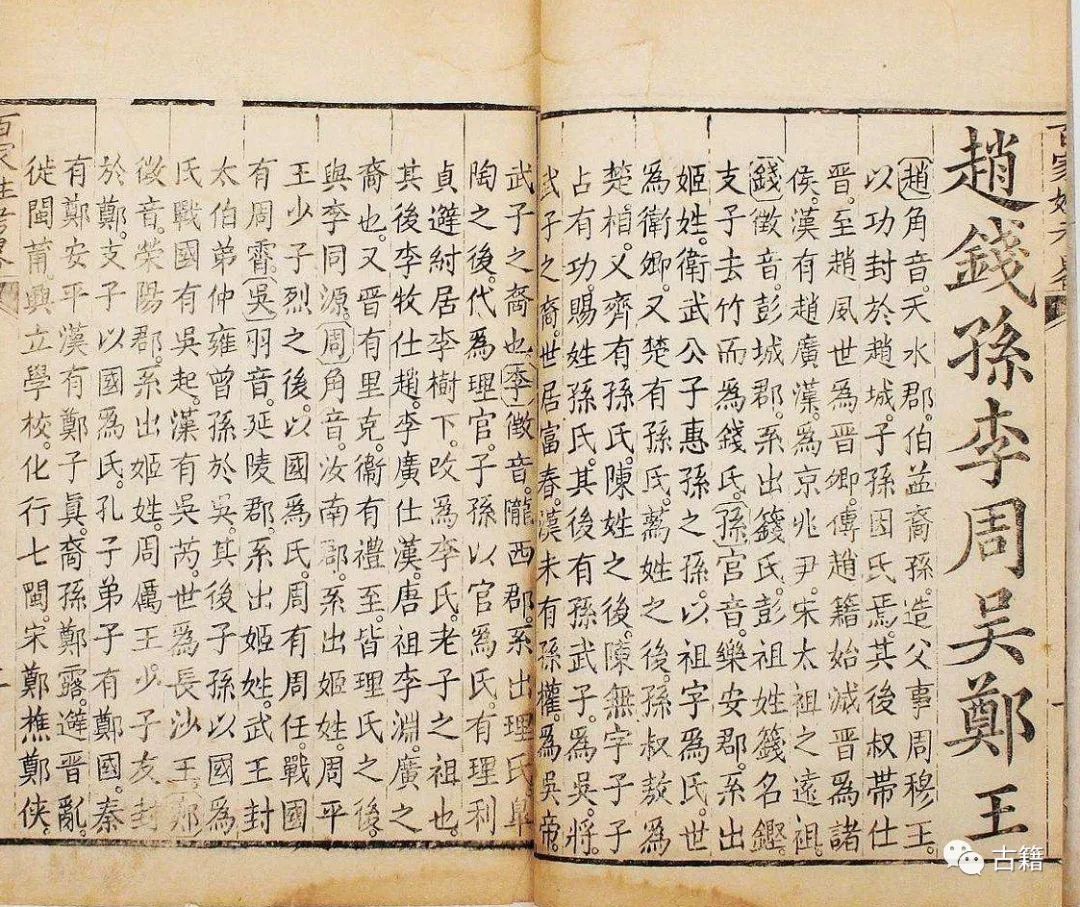 趙錢孫李周吳鄭王
趙角音。天水郡。伯益裔孫。造父事周穆王。
以功封於趙城。子孫因氏焉。其後叔帶仕
晉。至趙夙世為晉卿。傳趙籍始滅晉為諸
侯。漢有趙廣漢。為京兆尹。宋太祖之遠祖。
錢徵音。彭城郡。系出籛氏。彭祖姓籛名鏗。
支子去竹而為錢氏。孫宮音。樂安郡。系出
姬姓。衛武公子惠孫之孫。以祖字為氏。世
為衛卿。又楚有孫氏。蒍姓之後。孫叔敖為
楚相。又齊有孫氏。陳姓之後。陳無宇子子
占有功。賜姓孫氏。其後有孫武子。為吳將。
武子之裔。世居富春。漢末有孫權。為吳帝。
武子之裔也。李徵音。隴西郡。系出理氏。臯
陶之後。代為理官。子孫以官為氏。有理利
貞。避紂居李樹下。改為李氏。老子之祖也。
其後李牧仕趙。李廣仕漢。唐祖李淵。廣之
裔也。又晉有里克。衛有禮至。皆理氏之後。
與李同源。周角音。汝南郡。系出姬姓。周平
王少子烈之後。以國為氏。周有周任。戰國
有周霄。吳羽音。延陵郡。系出姬姓。武王封
太伯弟仲雍曾孫於吳。其後子孫以國為
氏。戰國有吳起。漢有吳芮。世為長沙王。鄭
徵音。滎陽郡。系出姬姓。周厲王少子友封
於鄭。支子以國為氏。孔子弟子有鄭國。秦
有鄭安平。漢有鄭子真。裔孫鄭露。避晉亂。
徙閩莆。興立學校。化行七閩。宋鄭樵鄭俠。
百家姓考畧
古籍